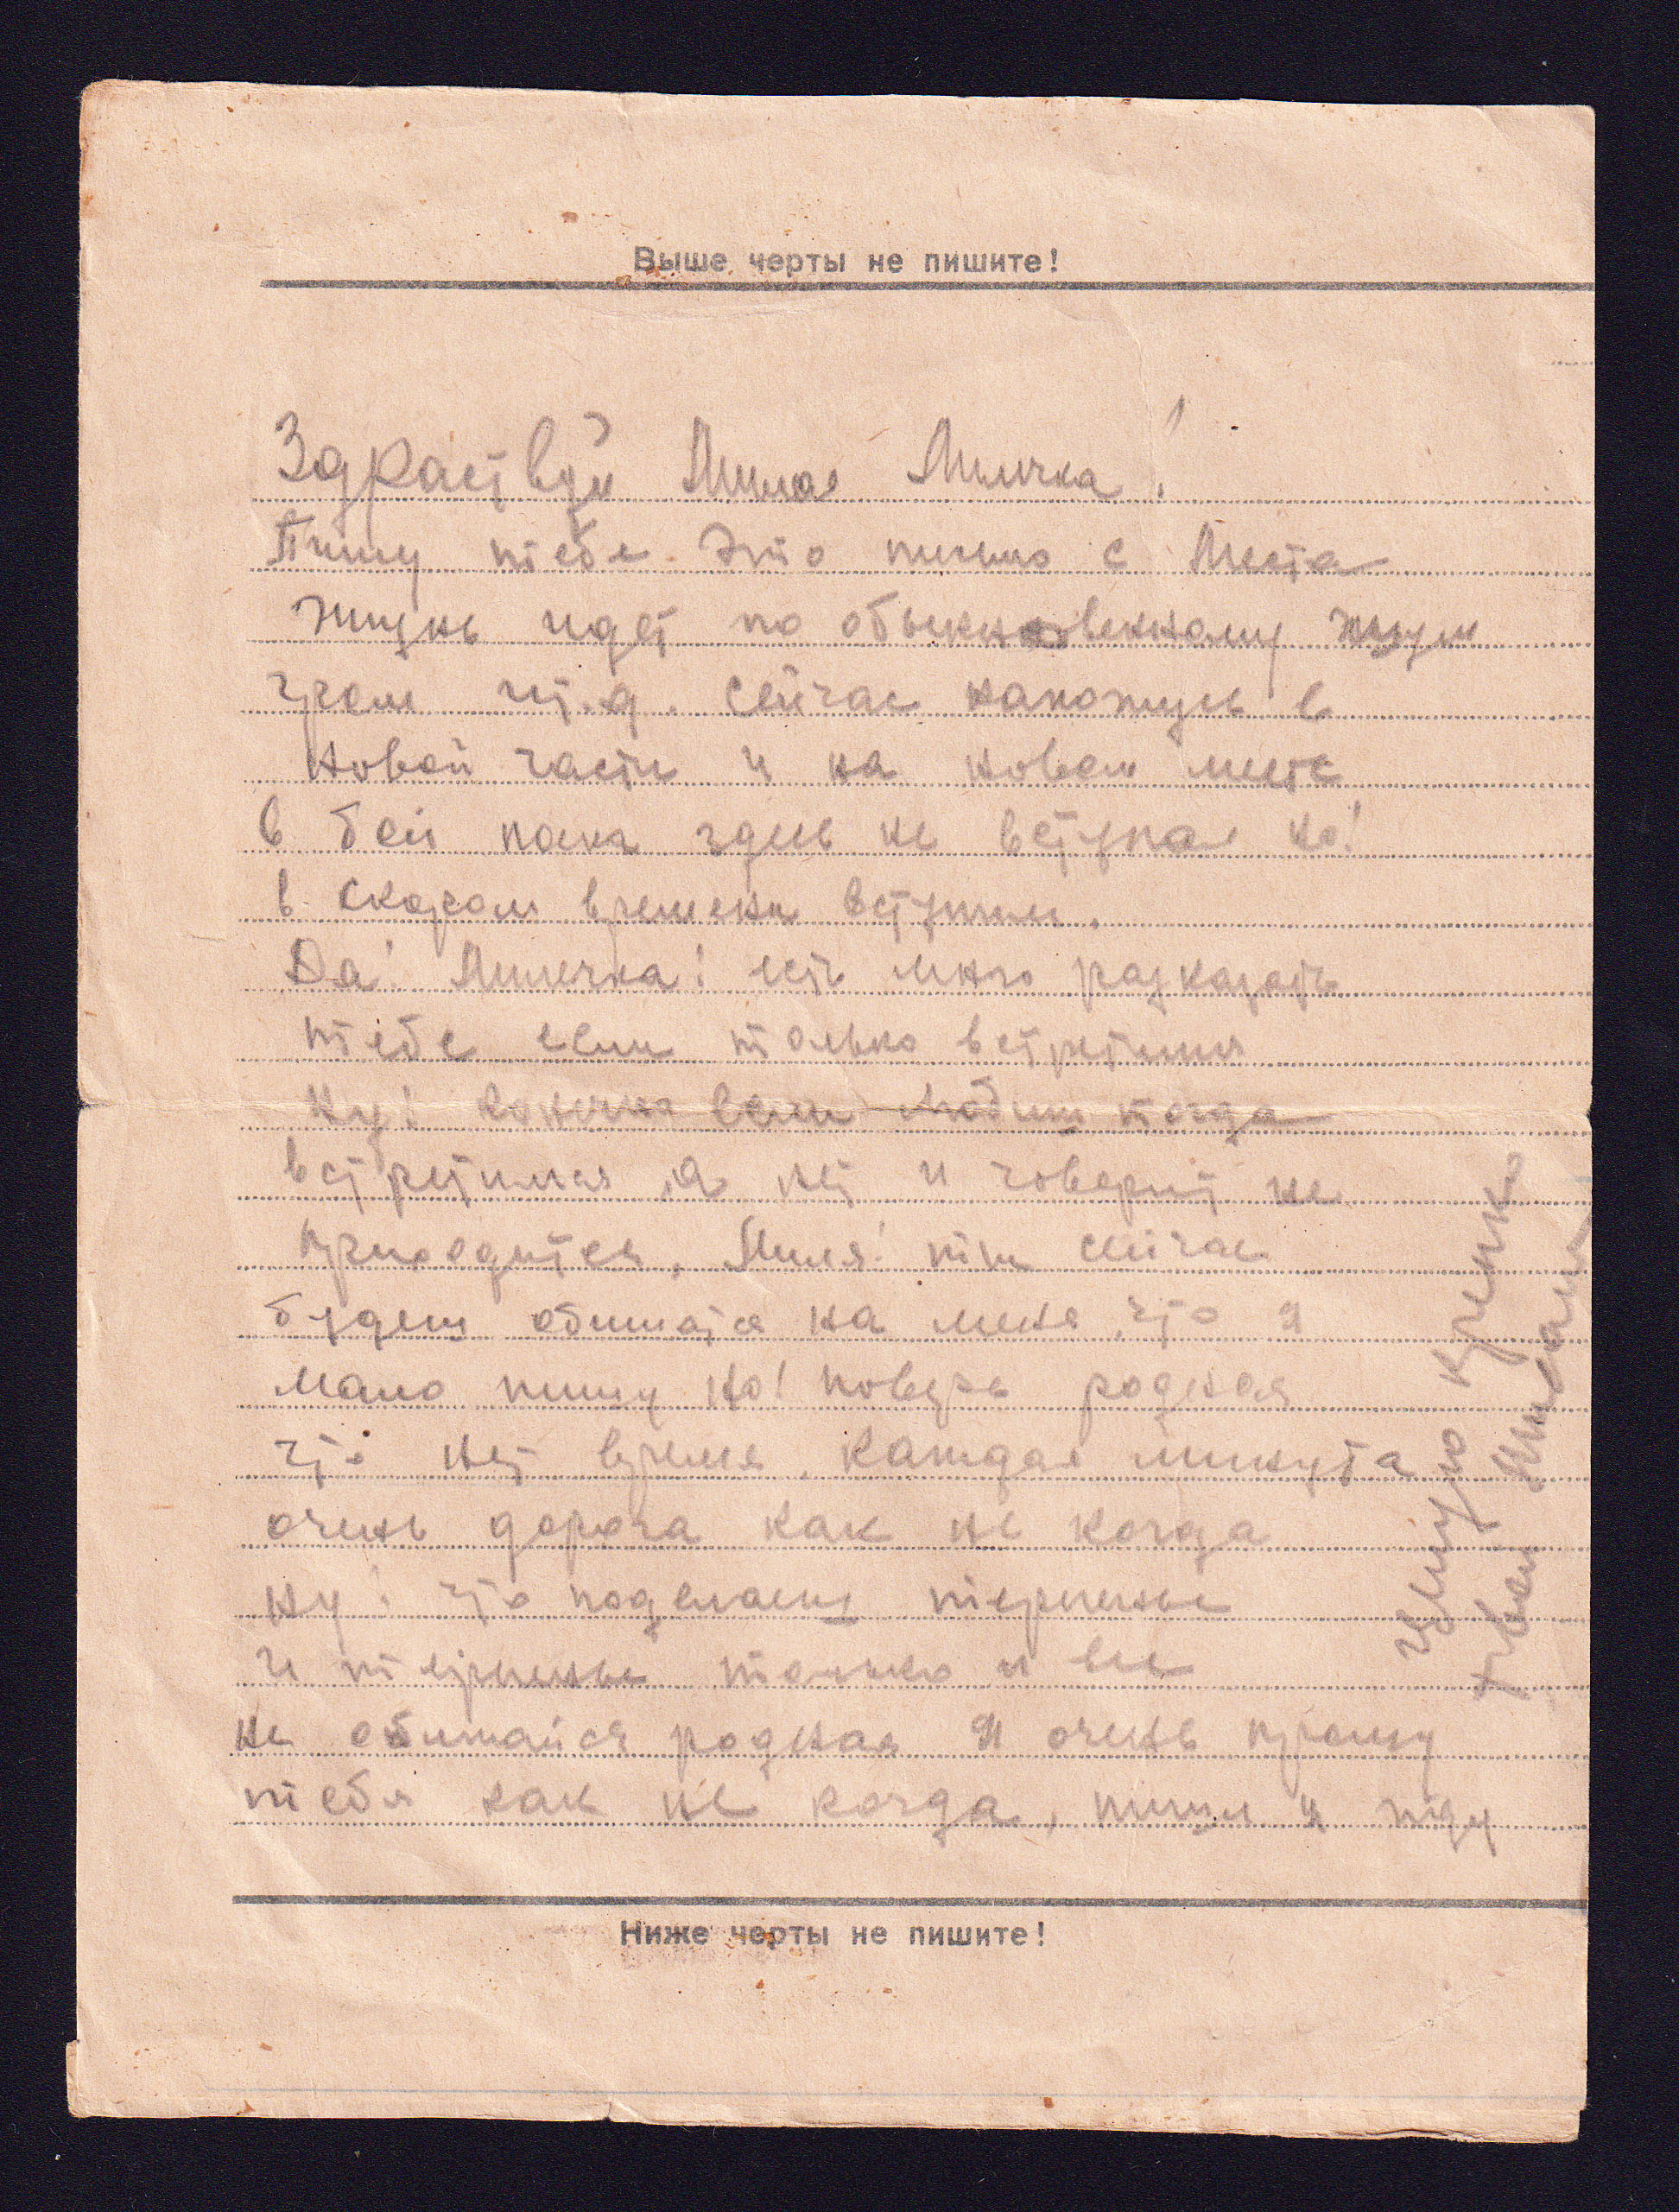 Выше черты не пишите!
Здраствуй Милая Миличка!
Пишу тебе это письмо с места
жизнь идет по обыкновенному
и т.д. сейчас нахожусь в
новой части и на новом месте
в бой пока здесь не вступал но!
в скором времени вступим.
Да! Милечка! есть много разказать
тебе если только встретимся
Ну! конечно если любиш тогда
встретимся, а нет и говорит не
приходится. Миля! ты сейчас
будеш обишатся на меня, что я
мало пишу но! поверь родная
что нет время. Каждая минута
очень дорога как не когда
ну! что поделаеш терпенье
и терпенье только и все
не обишайся родная я очень прошу
тебя как не когда, пиши я жду
Целую крепко
твой
Ниже черты не пишите!